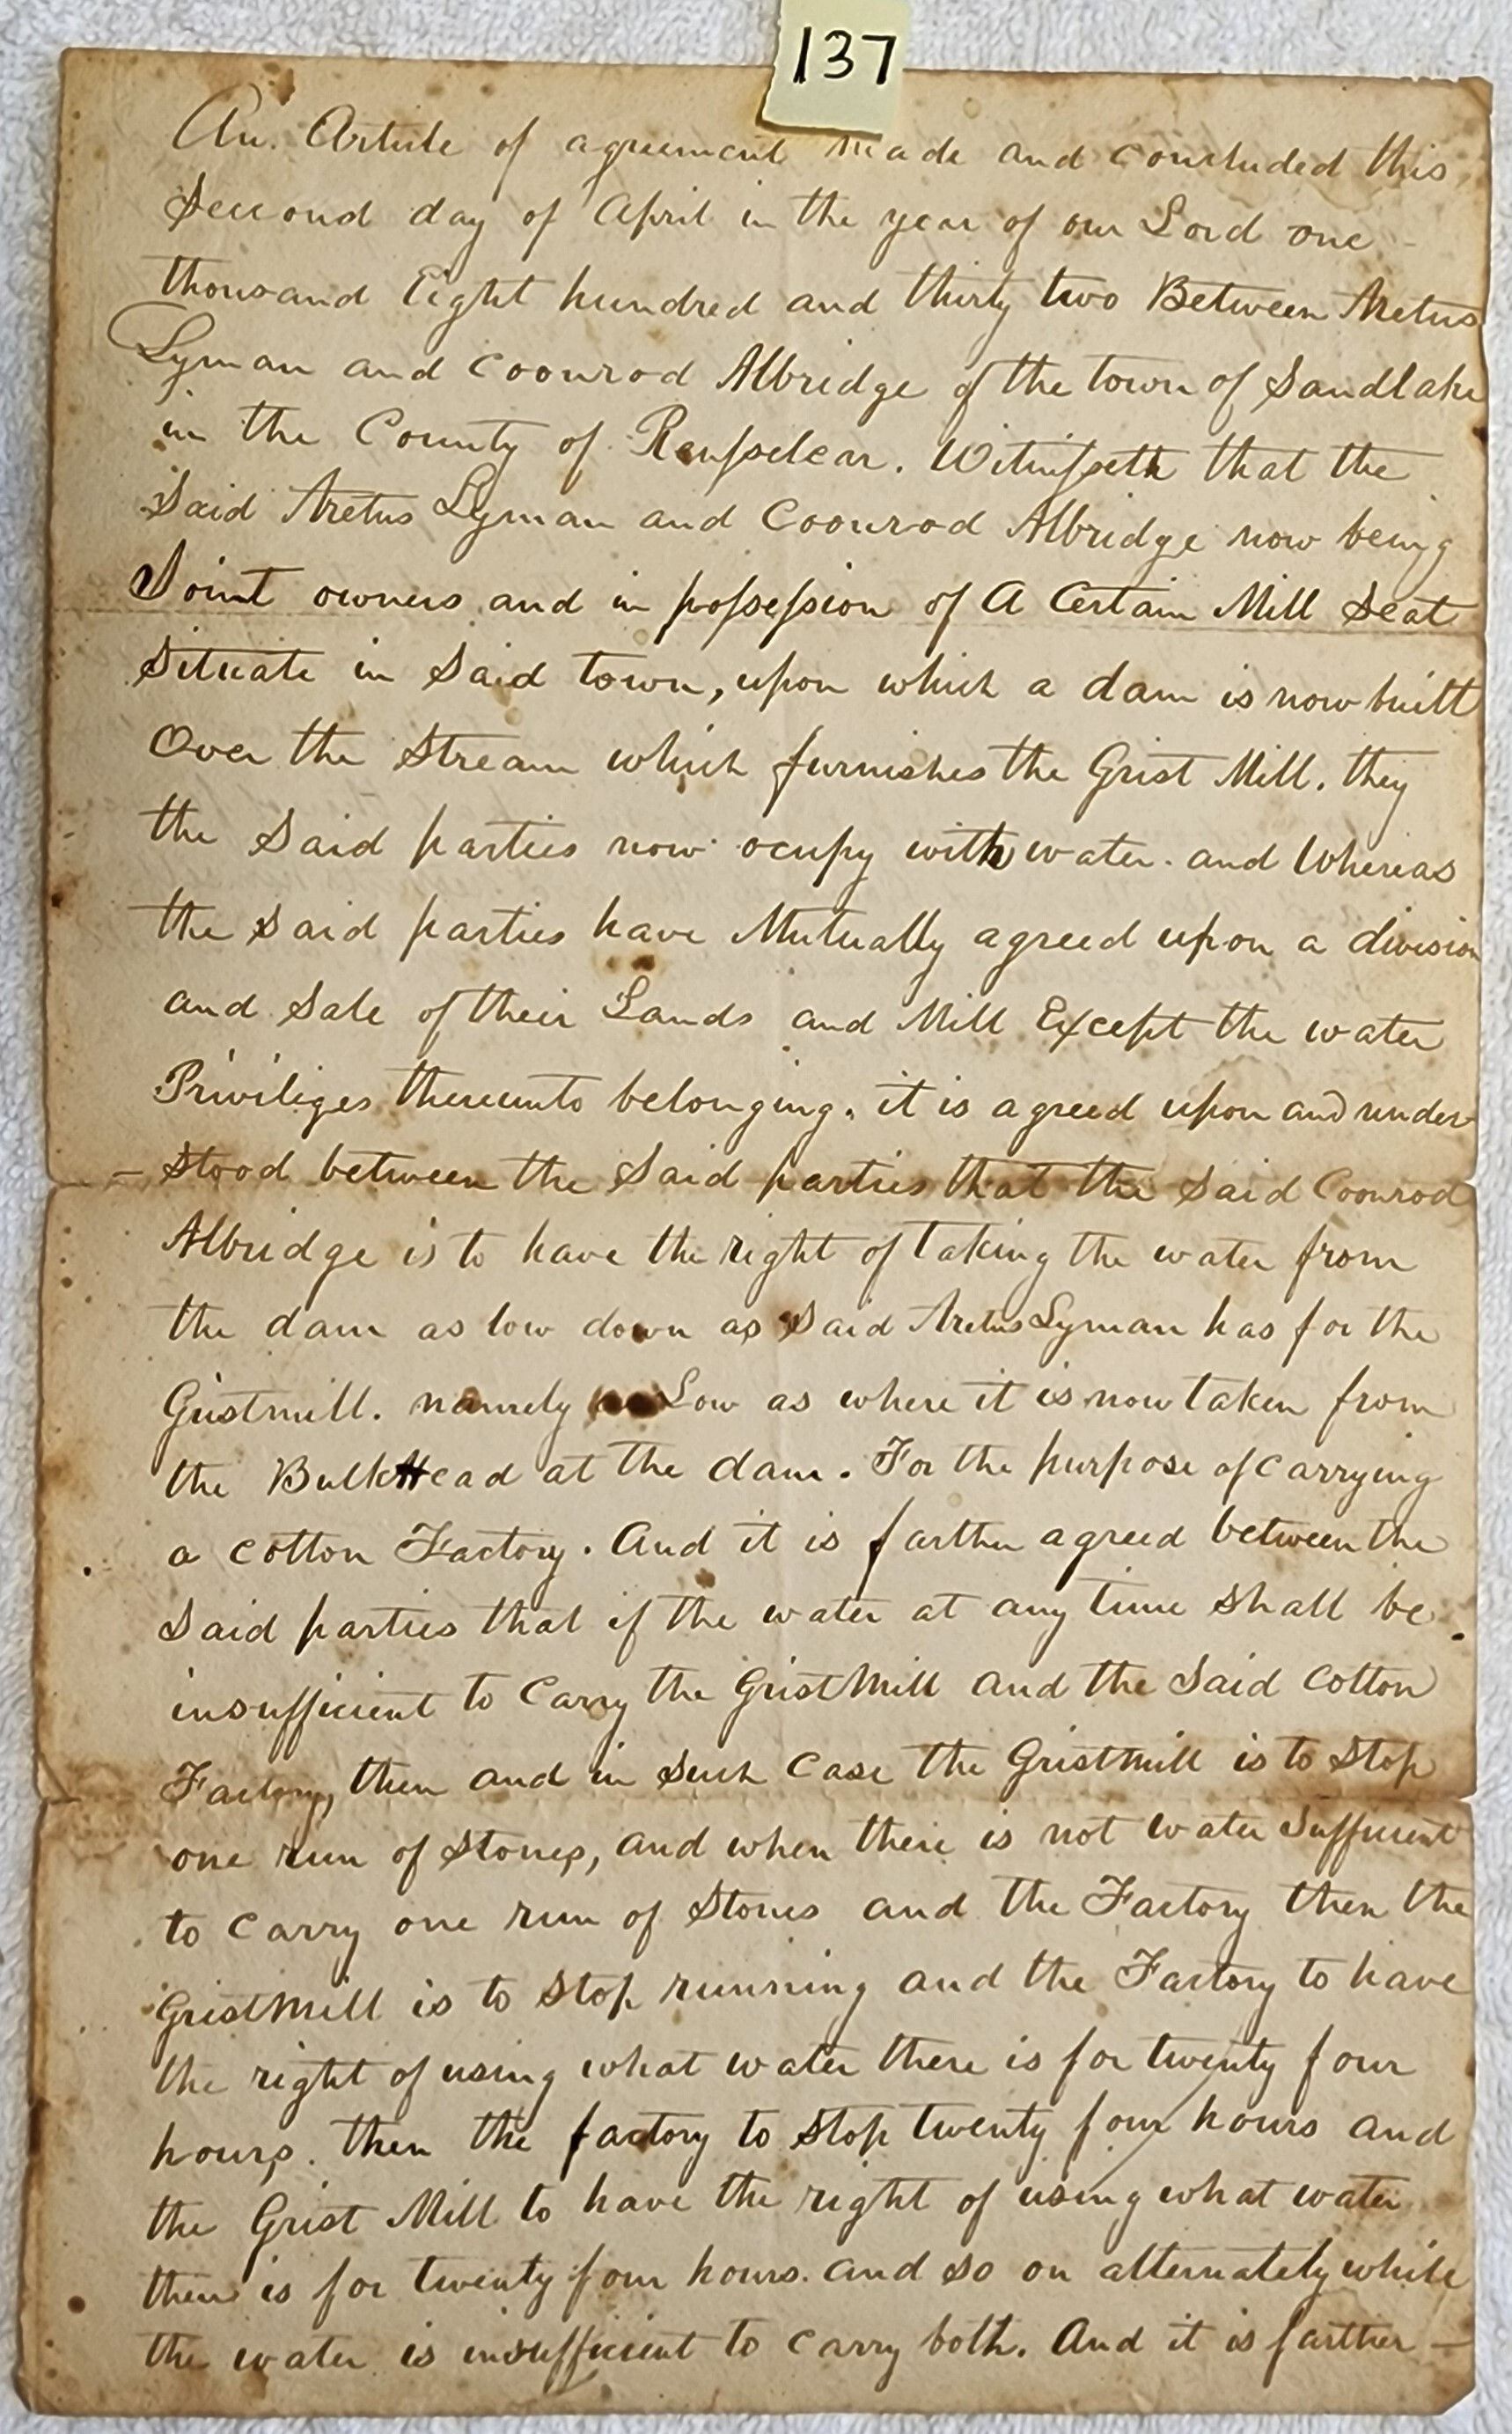 137
An. Article of agreement made and concluded this
Second day of April in the year of our Lord one
thousand Eight hundred and thirty two Between Aretus
Lyman and Coonrod Albridge of the town of Sandlake
in the County of Renſselear. Witneſseth that the
Said Aretus Lyman and Coonrod Albridge now being
Joint owners and in poſseſsion of A Certain Mill Seat
Situate in Said town, upon which a dam is now built
Over the Stream which furnishes the Grist Mill. they
the Said parties now ocupy with water. and Whereas
the Said parties have Mutually agreed upon a division
and Sale of their Lands and Mill Except the water
Priviliges thereunto belonging. it is agreed upon and under-
- Stood between the Said parties that the Said Coonrod
Albridge is to have the right of taking the water from
the dam as low down as Said Aretus Lyman has for the
Gristmill. namely as Low as where it is now taken from
the BulkHead at the dam. For the purpose of Carrying
a Cotton Factory. And it is farther agreed between the
Said parties that if the water at any time Shall be
insufficient to Carry the GristMill and the Said Cotton
Factory, then and in Such Case the Gristmill is to Stop
one run of Stones, and when there is not water Sufficient
to Carry one run of Stones and the Factory then the
GristMill is to Stop running and the Factory to have
the right of using what water there is for twenty four
hours. then the factory to Stop twenty four hours and
the Grist Mill to have the right of using what water
there is for twenty four hours. and so on alternately while
the water is insufficient to Carry both. And it is farther -